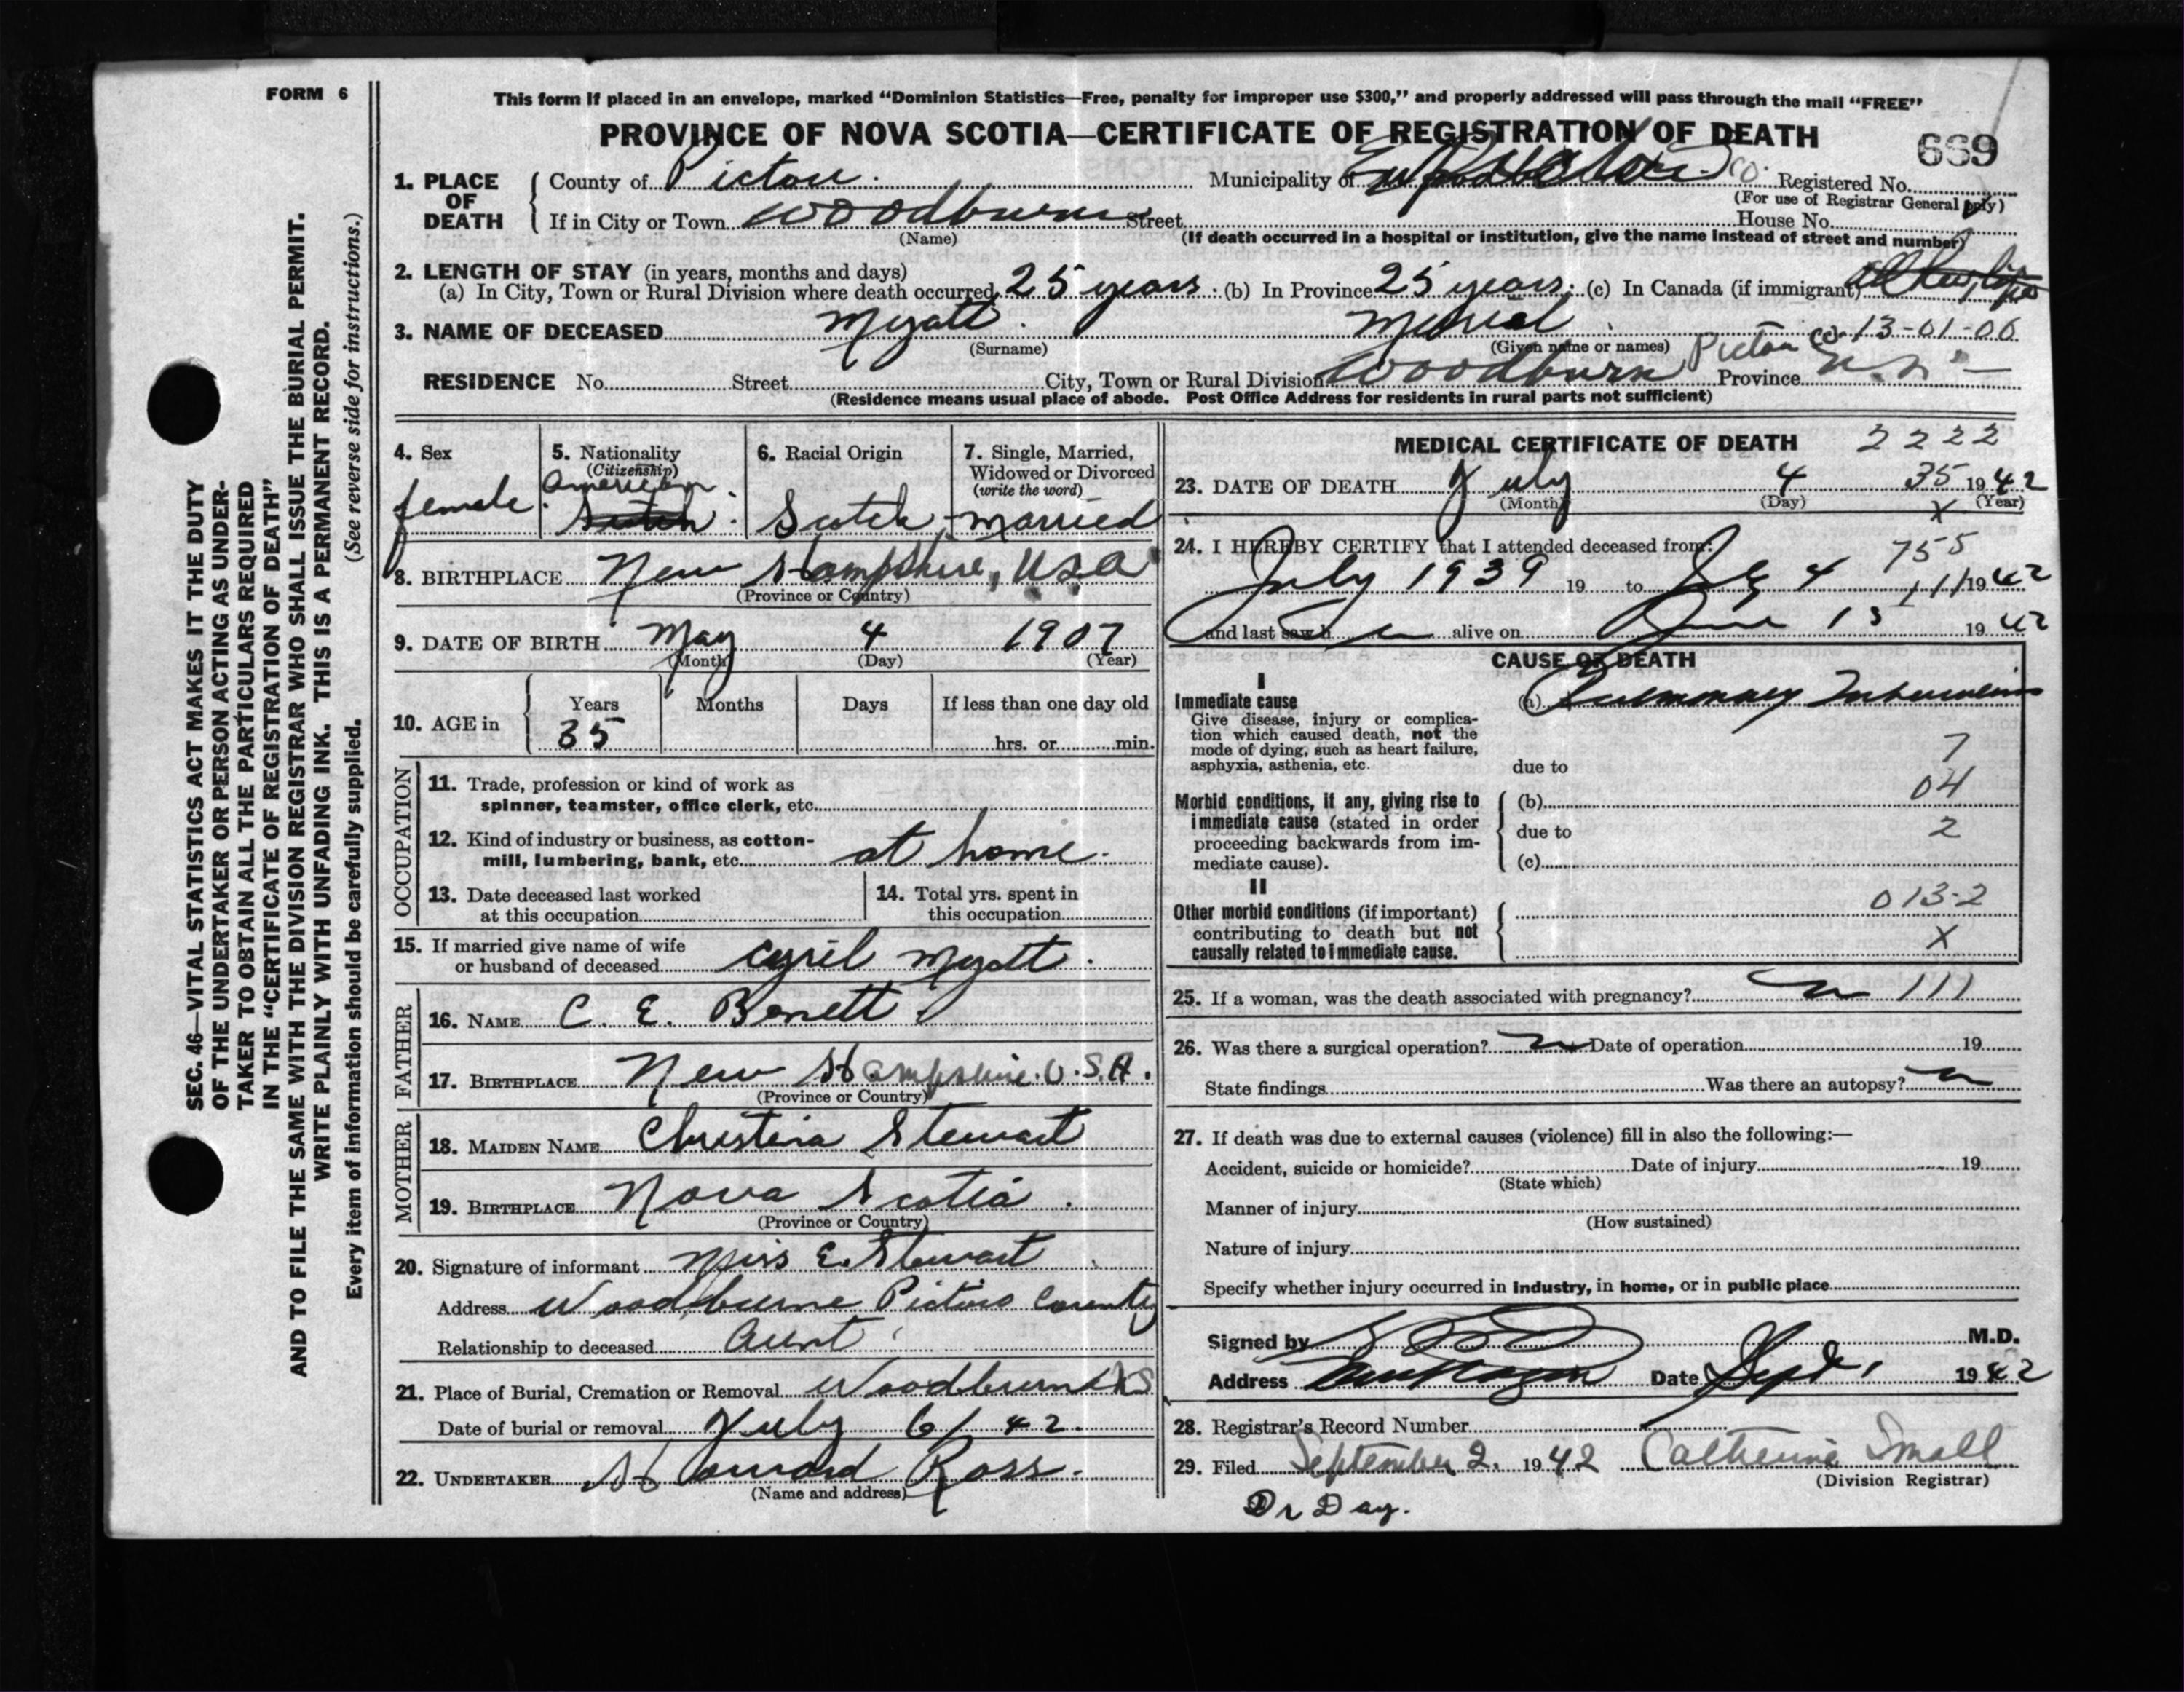 FORM 6
This form if placed in an envelope, marked “Dominion Statistics—Free, penalty for improper use $300,” and properly addressed will pass through the mail “FREE”
PROVINCE OF NOVA SCOTIA—CERTIFICATE OF REGISTRATION OF DEATH
669
1. PLACE OF DEATH
County of Pictou. Municipality of Co. Registered No.
(For use of Registrar General only)
If in City or Town Woodburn Street House No.
(Name) (If death occurred in a hospital or institution, give the name instead of street and number)
2. LENGTH OF STAY (in years, months and days)
(a) In City, Town or Rural Division where death occurred 25 years. (b) In Province 25 years. (c) In Canada (if immigrant)
3. NAME OF DECEASED Myatt. 13-01-06
(Surname) (Given name or names)
RESIDENCE No. Street City, Town or Rural Division Woodburn Pictou Co. Province N.S.
(Residence means usual place of abode. Post Office Address for residents in rural parts not sufficient)
4. Sex
female.
5. Nationality
(Citizenship)
American.
Scotch.
6. Racial Origin
Scotch
7. Single, Married, Widowed or Divorced
(write the word)
married
8. BIRTHPLACE New Hampshire, USA
(Province or Country)
9. DATE OF BIRTH May 4 1907
(Month) (Day) (Year)
10. AGE in Years Months Days If less than one day old
35 hrs. or min.
OCCUPATION
11. Trade, profession or kind of work as
spinner, teamster, office clerk, etc.
12. Kind of industry or business, as cotton-
mill, lumbering, bank, etc. at home.
13. Date deceased last worked
at this occupation
14. Total yrs. spent in
this occupation
15. If married give name of wife
or husband of deceased Cyril Myatt.
FATHER
16. NAME C. E. Benett.
17. BIRTHPLACE New Hampshire. U.S.A.
(Province or Country)
MOTHER
18. MAIDEN NAME Christina Stewart
19. BIRTHPLACE Nova Scotia.
(Province or Country)
20. Signature of informant Miss E. Stewart
Address Woodburne Pictou County
Relationship to deceased Aunt
21. Place of Burial, Cremation or Removal Woodburn NS
Date of burial or removal July 6/42.
22. UNDERTAKER Howard Ross.
(Name and address)
MEDICAL CERTIFICATE OF DEATH 2222
23. DATE OF DEATH July 4 35 1942
(Month) (Day) (Year)
X
24. I HEREBY CERTIFY that I attended deceased from:
755
July 1939 19 to July 4 111 1942
and last saw h er alive on June 15 1942
CAUSE OF DEATH
I
Immediate cause
Give disease, injury or complica-
tion which caused death, not the
mode of dying, such as heart failure,
asphyxia, asthenia, etc.
(a) Pulmonary Tuberculosis
7
due to
Morbid conditions, if any, giving rise to
immediate cause (stated in order
proceeding backwards from im-
mediate cause).
(b) 04
due to 2
(c)
II
Other morbid conditions (if important)
contributing to death but not
causally related to immediate cause.
013-2
X
25. If a woman, was the death associated with pregnancy? no 111
26. Was there a surgical operation? no Date of operation 19
State findings Was there an autopsy? no
27. If death was due to external causes (violence) fill in also the following:—
Accident, suicide or homicide? Date of injury 19
(State which)
Manner of injury
(How sustained)
Nature of injury
Specify whether injury occurred in industry, in home, or in public place
Signed by M.D.
Address Date Sept. 1 1942
28. Registrar's Record Number
29. Filed September 2. 1942 Catherine Small
(Division Registrar)
Dr Day.
SEC. 46—VITAL STATISTICS ACT MAKES IT THE DUTY
OF THE UNDERTAKER OR PERSON ACTING AS UNDER-
TAKER TO OBTAIN ALL THE PARTICULARS REQUIRED
IN THE “CERTIFICATE OF REGISTRATION OF DEATH”
AND TO FILE THE SAME WITH THE DIVISION REGISTRAR WHO SHALL ISSUE THE BURIAL PERMIT.
WRITE PLAINLY WITH UNFADING INK. THIS IS A PERMANENT RECORD.
Every item of information should be carefully supplied. (See reverse side for instructions.)